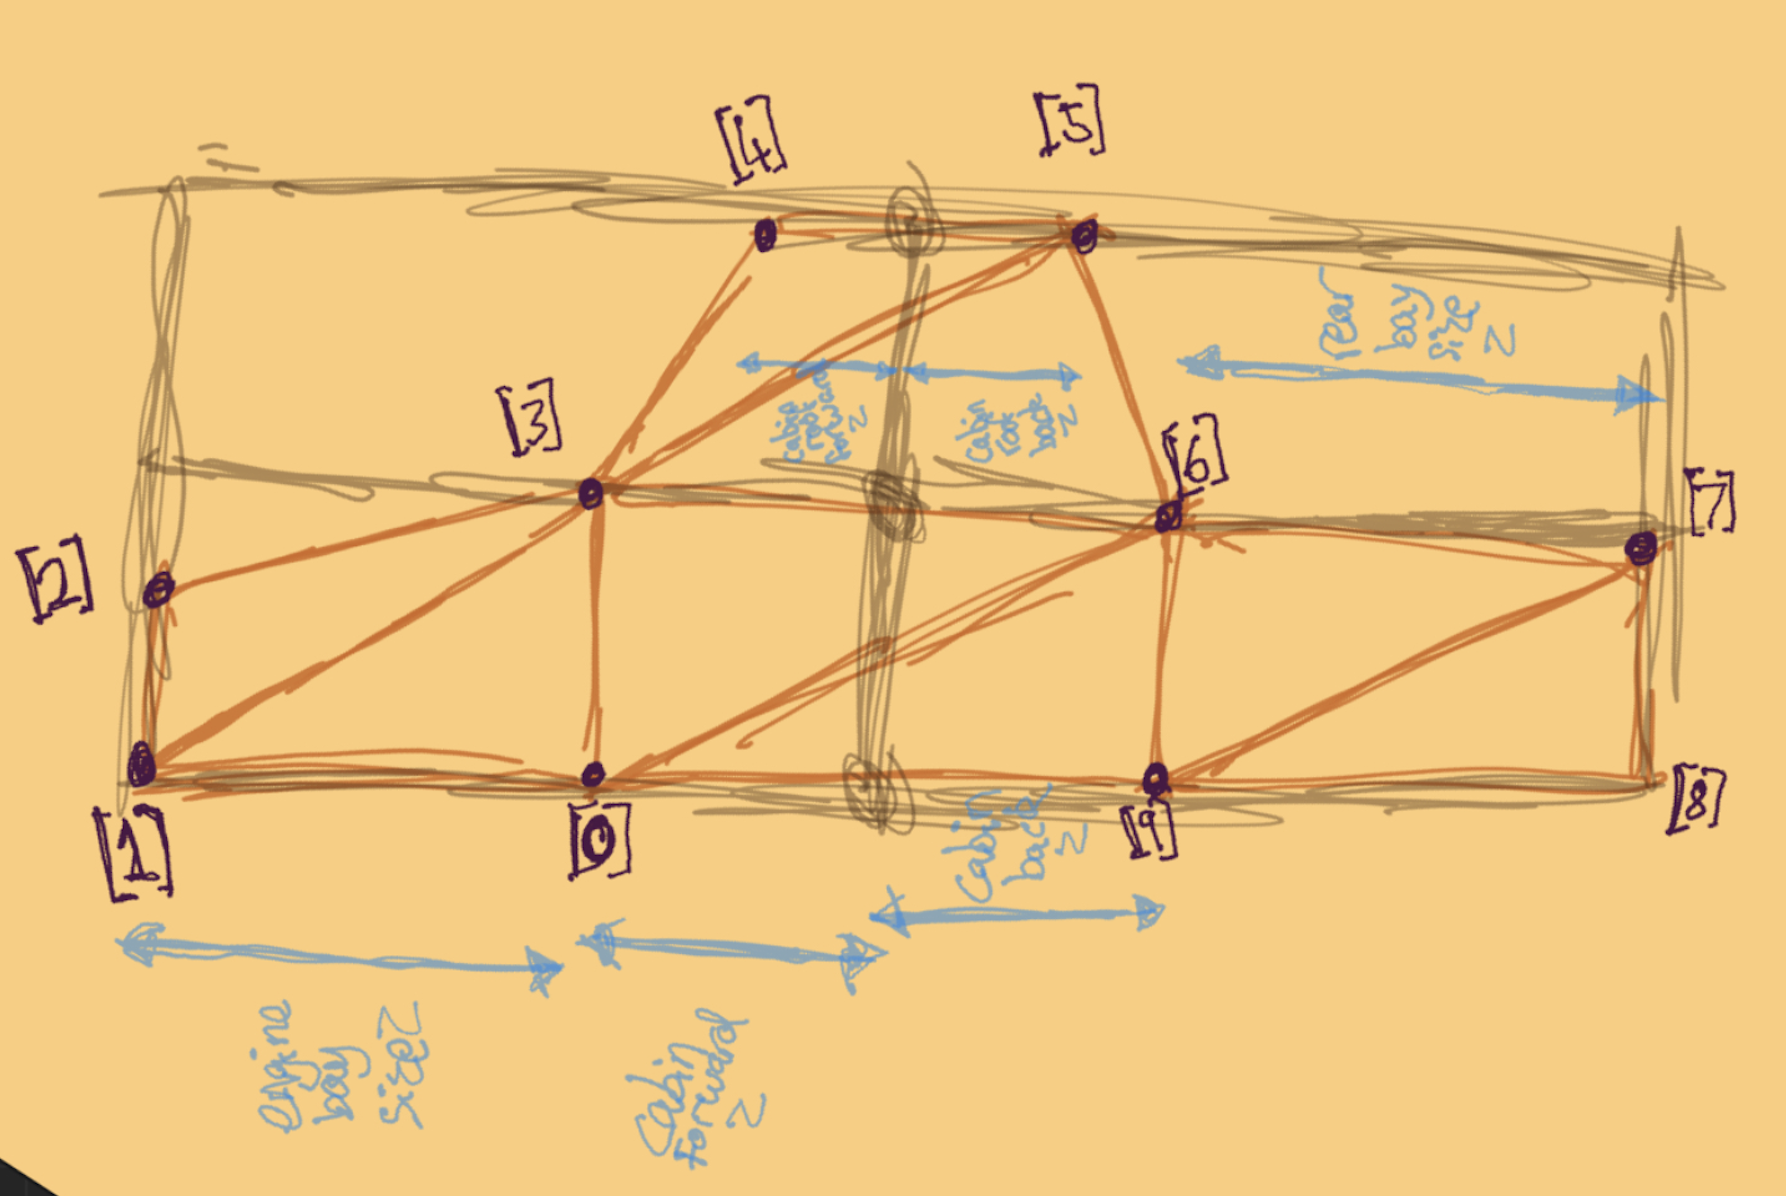 [4]
[5]
rear
bay
size
z
[3]
cabin
roof
forward
z
cabin
roof
back
z
[6]
[7]
[2]
[1]
[0]
[9]
[8]
cabin
back
z
engine
bay
size z
cabin
forward
z